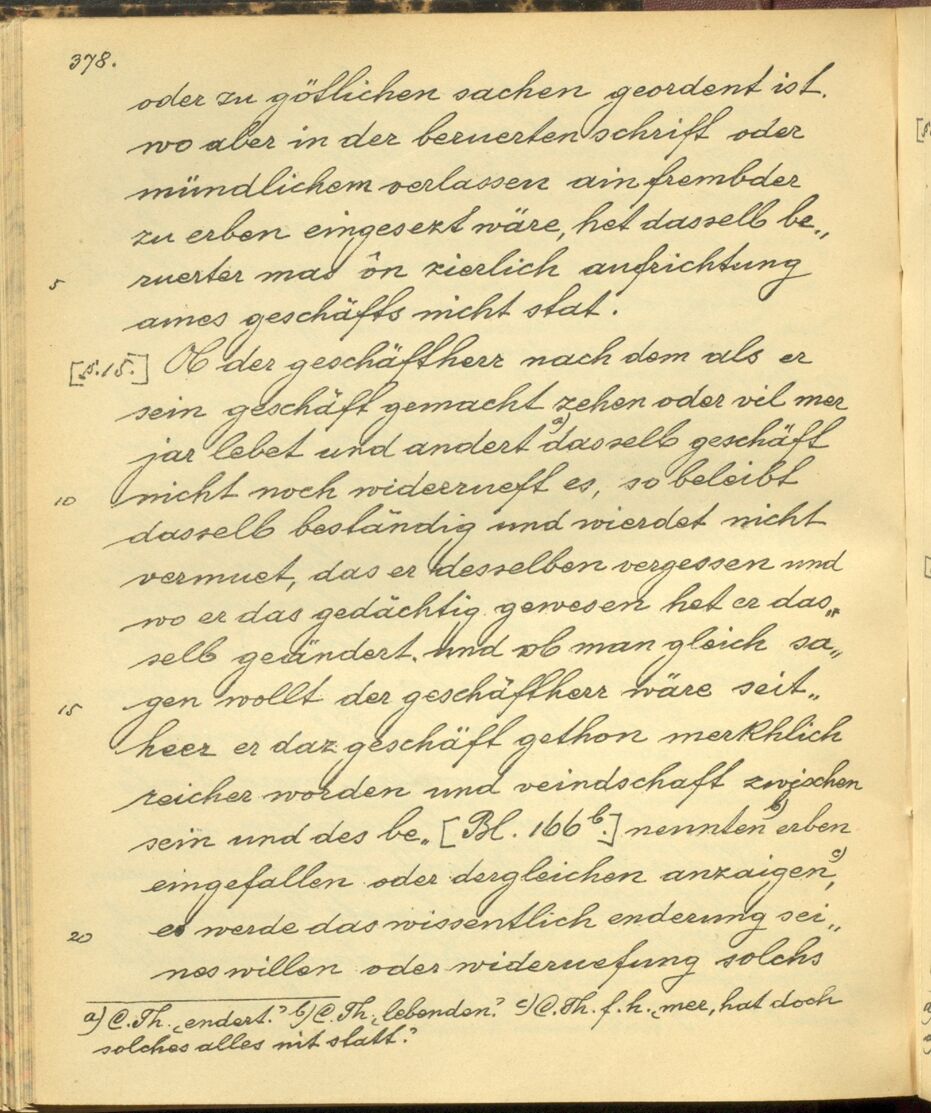 378.
oder zu götlichen sachen geordent ist.
wo aber in der beruerten schrift oder
mündlichem verlassen ain frembder
zu erben eingesezt wäre, het dasselb be„
5 ruerter mas ôn zierlich aufrichtung
aines geschäffts nicht stat.
[§. 15.] Ob der geschäftherr nach dem als er
sein geschäft gemacht zehen oder vil mer
jar lebet und andert a) dasselb geschäft
10 nicht noch widerrueft es, so beleibt
dasselb beständig und wierdet nicht
vermuet, das er desselben vergessen und
wo er das gedächtig gewesen het er das„
selb geändert. und ob man gleich sa„
15 gen wollt der geschäftherr wäre seit„
heer er daz geschäft gethon merkhlich
reicher worden und veindschaft zwischen
sein und des be„ [Bl. 166 b.] nennten b) erben
eingefallen oder dergleichen anzaigen, c)
20 es werde das wissentlich enderung sei„
nes willen oder widerruefung solchs
a) C. Th. „endert.“ b) C. Th. „lebenden.“ c) C. Th. f. h. „mer, hat doch
solches alles nit statt.“